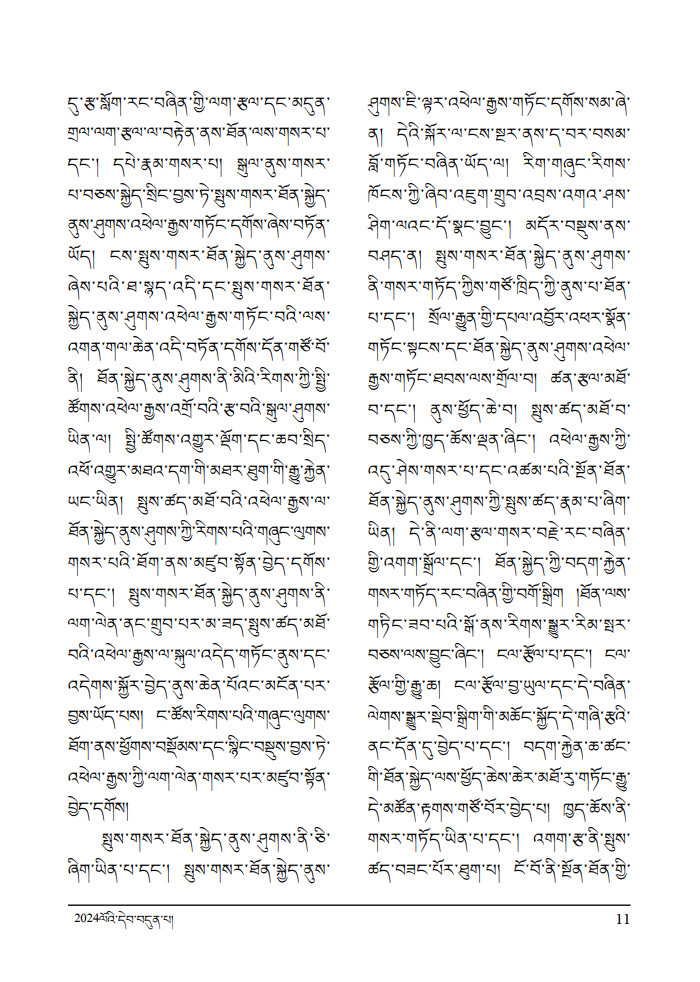 དུ་རྩ་སློག་རང་བཞིན་གྱི་ལག་རྩལ་དང་མདུན་
གྲལ་ལག་རྩལ་ལ་བརྟེན་ནས་ཐོན་ལས་གསར་པ་
དང་། དཔེ་རྣམ་གསར་པ། སྒུལ་ནུས་གསར་
པ་བཅས་སྐྱེད་སྲིང་བྱས་ཏེ་སྤུས་གསར་ཐོན་སྐྱེད་
ནུས་ཤུགས་འཕེལ་རྒྱས་གཏོང་དགོས་ཞེས་བཏོན་
ཡོད། ངས་སྤུས་གསར་ཐོན་སྐྱེད་ནུས་ཤུགས་
ཞེས་པའི་ཐ་སྙད་འདི་དང་སྤུས་གསར་ཐོན་
སྐྱེད་ནུས་ཤུགས་འཕེལ་རྒྱས་གཏོང་བའི་ལས་
འགན་གལ་ཆེན་འདི་བཏོན་དགོས་དོན་གཙོ་བོ་
ནི། ཐོན་སྐྱེད་ནུས་ཤུགས་ནི་མིའི་རིགས་ཀྱི་སྤྱི་
ཚོགས་འཕེལ་རྒྱས་འགྲོ་བའི་རྩ་བའི་སྒུལ་ཤུགས་
ཡིན་ལ། སྤྱི་ཚོགས་འགྱུར་ལྡོག་དང་ཆབ་སྲིད་
འཕོ་འགྱུར་མཐའ་དག་གི་མཐར་ཐུག་གི་རྒྱུ་རྐྱེན་
ཡང་ཡིན། སྤུས་ཚད་མཐོ་བའི་འཕེལ་རྒྱས་ལ་
ཐོན་སྐྱེད་ནུས་ཤུགས་ཀྱི་རིགས་པའི་གཞུང་ལུགས་
གསར་པའི་ཐོག་ནས་མཛུབ་སྟོན་བྱེད་དགོས་
པ་དང་། སྤུས་གསར་ཐོན་སྐྱེད་ནུས་ཤུགས་ནི་
ལག་ལེན་ནང་གྲུབ་པར་མ་ཟད་སྤུས་ཚད་མཐོ་
བའི་འཕེལ་རྒྱས་ལ་སྐུལ་འདེད་གཏོང་ནུས་དང་
འདེགས་སྐྱོར་བྱེད་ནུས་ཆེན་པོའང་མངོན་པར་
བྱས་ཡོད་པས། ང་ཚོས་རིགས་པའི་གཞུང་ལུགས་
ཐོག་ནས་ཕྱོགས་བསྡོམས་དང་སྙིང་བསྡུས་བྱས་ཏེ་
འཕེལ་རྒྱས་ཀྱི་ལག་ལེན་གསར་པར་མཛུབ་སྟོན་
བྱེད་དགོས།
སྤུས་གསར་ཐོན་སྐྱེད་ནུས་ཤུགས་ནི་ཅི་
ཞིག་ཡིན་པ་དང་། སྤུས་གསར་ཐོན་སྐྱེད་ནུས་
ཤུགས་ཇི་ལྟར་འཕེལ་རྒྱས་གཏོང་དགོས་སམ་ཞེ་
ན། དེའི་སྐོར་ལ་ངས་སྔར་ནས་ད་བར་བསམ་
བློ་གཏོང་བཞིན་ཡོད་ལ། རིག་གཞུང་རིགས་
ཁོངས་ཀྱི་ཞིབ་འཇུག་གྲུབ་འབྲས་འགའ་ཤས་
ཤིག་ལའང་དོ་སྣང་བྱུང་། མདོར་བསྡུས་ནས་
བཤད་ན། སྤུས་གསར་ཐོན་སྐྱེད་ནུས་ཤུགས་
ནི་གསར་གཏོད་ཀྱིས་གཙོ་ཁྲིད་ཀྱི་ནུས་པ་ཐོན་
པ་དང་། སྲོལ་རྒྱུན་གྱི་དཔལ་འབྱོར་འཕར་སྣོན་
གཏོང་སྟངས་དང་ཐོན་སྐྱེད་ནུས་ཤུགས་འཕེལ་
རྒྱས་གཏོང་ཐབས་ལས་གྲོལ་བ། ཚན་རྩལ་མཐོ་
བ་དང་། ནུས་ཕྱོད་ཆེ་བ། སྤུས་ཚད་མཐོ་བ་
བཅས་ཀྱི་ཁྱད་ཆོས་ལྡན་ཞིང་། འཕེལ་རྒྱས་ཀྱི་
འདུ་ཤེས་གསར་པ་དང་འཚམ་པའི་སྔོན་ཐོན་
ཐོན་སྐྱེད་ནུས་ཤུགས་ཀྱི་སྤུས་ཚད་རྣམ་པ་ཞིག་
ཡིན། དེ་ནི་ལག་རྩལ་གསར་བརྗེ་རང་བཞིན་
གྱི་འགག་སྒྲོལ་དང་། ཐོན་སྐྱེད་ཀྱི་བདག་རྐྱེན་
གསར་གཏོད་རང་བཞིན་གྱི་བགོ་སྒྲིག །ཐོན་ལས་
གཏིང་ཟབ་པའི་སྒོ་ནས་རིགས་སྒྱུར་རིམ་སྤར་
བཅས་ལས་བྱུང་ཞིང་། ངལ་རྩོལ་པ་དང་། ངལ་
རྩོལ་གྱི་རྒྱུ་ཆ། ངལ་རྩོལ་བྱ་ཡུལ་དང་དེ་བཞིན་
ལེགས་སྒྱུར་སྡེབ་སྒྲིག་གི་མཆོང་སྐྱོད་དེ་གཞི་རྩའི་
ནང་དོན་དུ་བྱེད་པ་དང་། བདག་རྐྱེན་ཆ་ཚང་
གི་ཐོན་སྐྱེད་ལས་ཕྱོད་ཆེས་ཆེར་མཐོ་རུ་གཏོང་རྒྱུ་
དེ་མཚོན་རྟགས་གཙོ་བོར་བྱེད་པ། ཁྱད་ཆོས་ནི་
གསར་གཏོད་ཡིན་པ་དང་། འགག་རྩ་ནི་སྤུས་
ཚད་བཟང་པོར་ཐུག་པ། ངོ་བོ་ནི་སྔོན་ཐོན་གྱི་
2024ལོའི་དེབ་བདུན་པ། 11